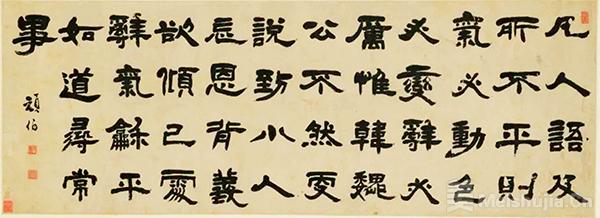 凡人語及
所不平則
氣必動色
必變辭必
厲惟韓魏
公不然更
說到小人
忘恩背義
欲傾己處
辭氣龢平
如道尋常
事
頑伯
Meishujia.Cn